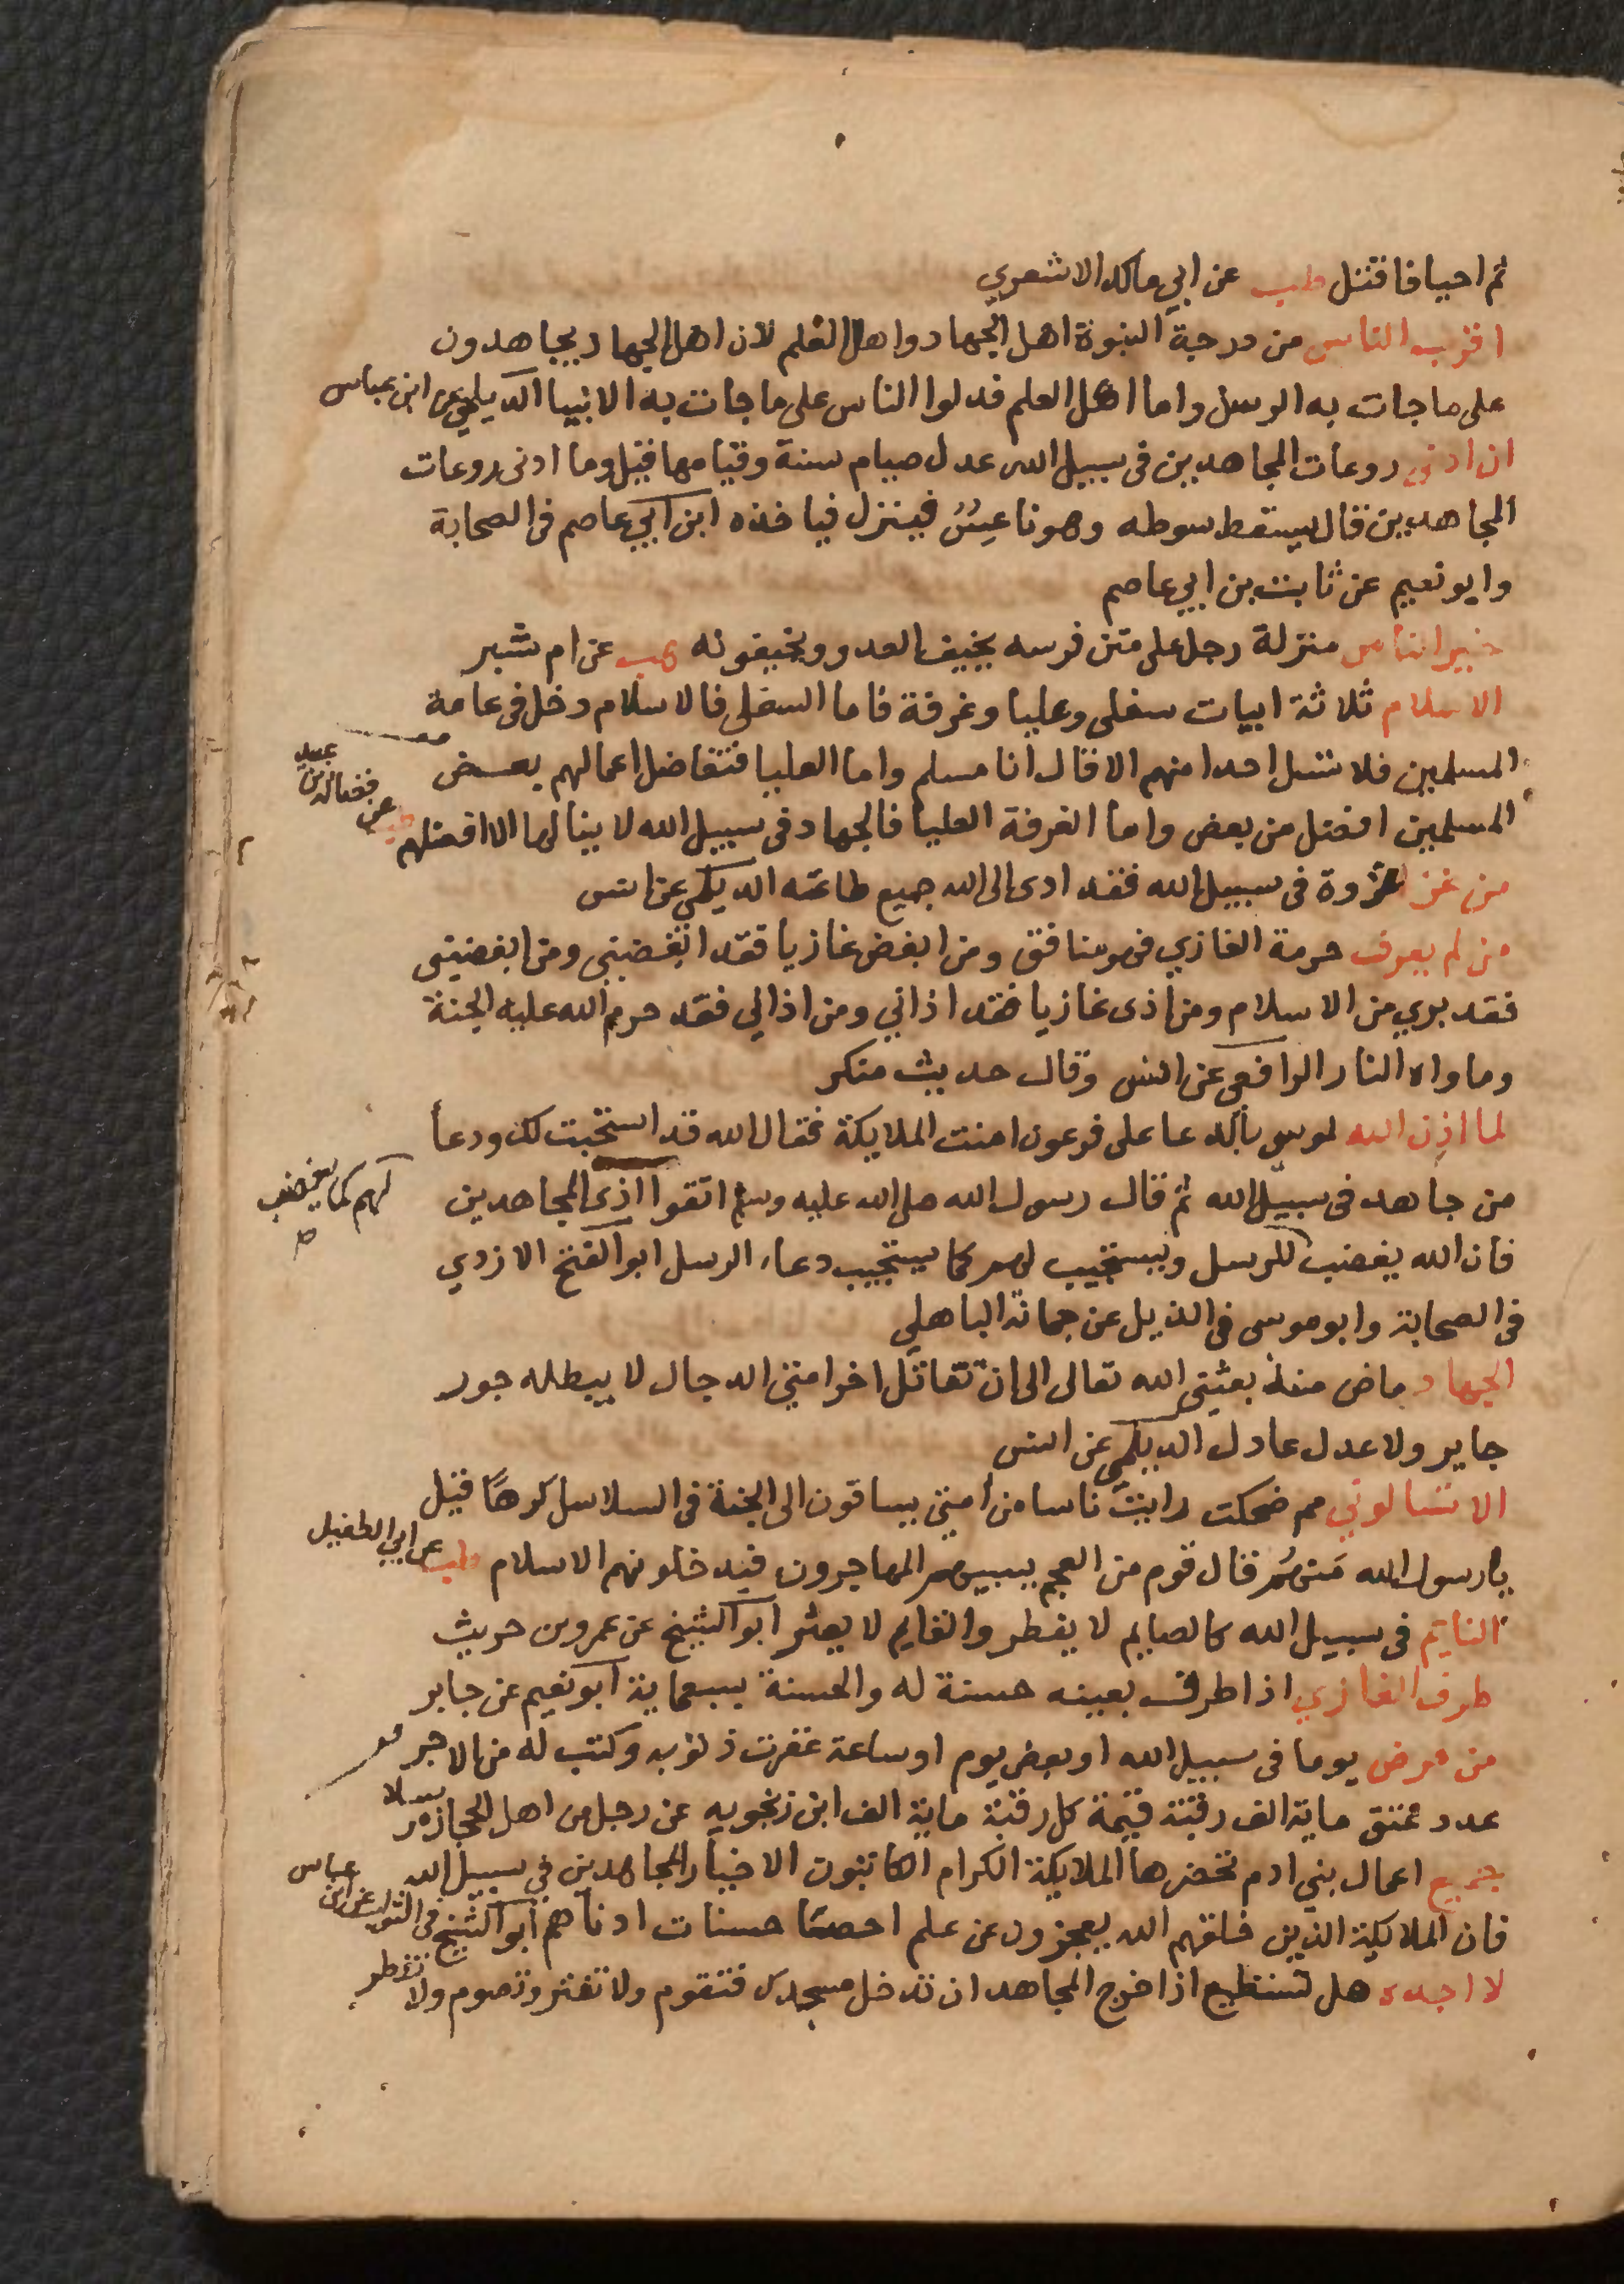 ثم احيا فاقتل طب عن ابي مالك الاشعري
اقرب الناس من درجة النبوة اهل الجهاد واهل العلم لان اهل الجهاد يجاهدون
على ما جات به الرسل واما اهل العلم فدلوا الناس على ما جات به الانبيا الديلمي عن ابن عباس
ان ادنى روعات المجاهدين في سبيل الله عدل صيام سنة وقيامها قيل وما ادنى روعات
المجاهدين قال يسقط سوطه وهو ناعس فينزل فياخذه ابن ابي عاصم في الصحابة
وابو نعيم عن ثابت بن ابي عاصم
خير الناس منزلة رجل على متن فرسه يخيف العدو ويخيفونه هب عن ام مبشر
الاسلام ثلاثة ابيات سفلى وعليا وغرفة فاما السفلى فالاسلام دخل في عامة
المسلمين فلا تسل احدا منهم الا قال انا مسلم واما العليا فتفاضل اعمالهم بعض
المسلمين افضل من بعض واما الغرفة العليا فالجهاد في سبيل الله لا ينالها الا افضلهم طب عن فضالة بن عبيد
من غزا غزوة في سبيل الله فقد ادى الى الله جميع طاعته الديلمي عن انس
من لم يعرف حرمة الغازي فهو منافق ومن ابغض غازيا فقد ابغضني ومن ابغضني
فقد بري من الاسلام ومن اذى غازيا فقد اذاني ومن اذاني فقد حرم الله عليه الجنة
وماواه النار الرافعي عن انس وقال حديث منكر
لما اذن الله لموسى بالدعا على فرعون امنت الملايكة فقال الله قد استجبت لك ودعا
من جاهد في سبيل الله ثم قال رسول الله صلى الله عليه وسلم اتقوا اذى المجاهدين
فان الله يغضب لهم كما يغضب للرسل ويستجيب لهم كما يستجيب دعاء الرسل ابو الفتح الازدي
في الصحابة وابو موسى في الذيل عن جمانة الباهلي
الجهاد ماض منذ بعثني الله تعالى الى ان تقاتل اخر امتي الدجال لا يبطله جور
جاير ولا عدل عادل الديلمي عن انس
الا تسالوني مم ضحكت رايت ناسا من امتي يساقون الى الجنة في السلاسل كرها قيل
يا رسول الله من هم قال قوم من العجم يسبيهم المهاجرون فيدخلونهم الاسلام طب عن ابي الطفيل
النايم في سبيل الله كالصايم لا يفطر والقايم لا يفتر ابو الشيخ عن عمرو بن حريث
طرف الغازي اذا طرف بعينه حسنة له والحسنة بسبعماية ابو نعيم عن جابر
من مرض يوما في سبيل الله او بعض يوم او ساعة غفرت ذنوبه وكتب له من الاجر
عدد عتق ماية الف رقبة قيمة كل رقبة ماية الف ابن زنجويه عن رجل من اهل الحجاز مرسلا
جميع اعمال بني ادم تحضرها الملايكة الكرام الكاتبون الا خيار المجاهدين في سبيل الله
فان الملايكة الذين خلقهم الله يعجزون عن علم احصا حسنات ادناهم ابو الشيخ في الثواب عن ابن عباس
لا اجده هل تستطيع اذا خرج المجاهد ان تدخل مسجدك فتقوم ولا تفتر وتصوم ولا تفطر